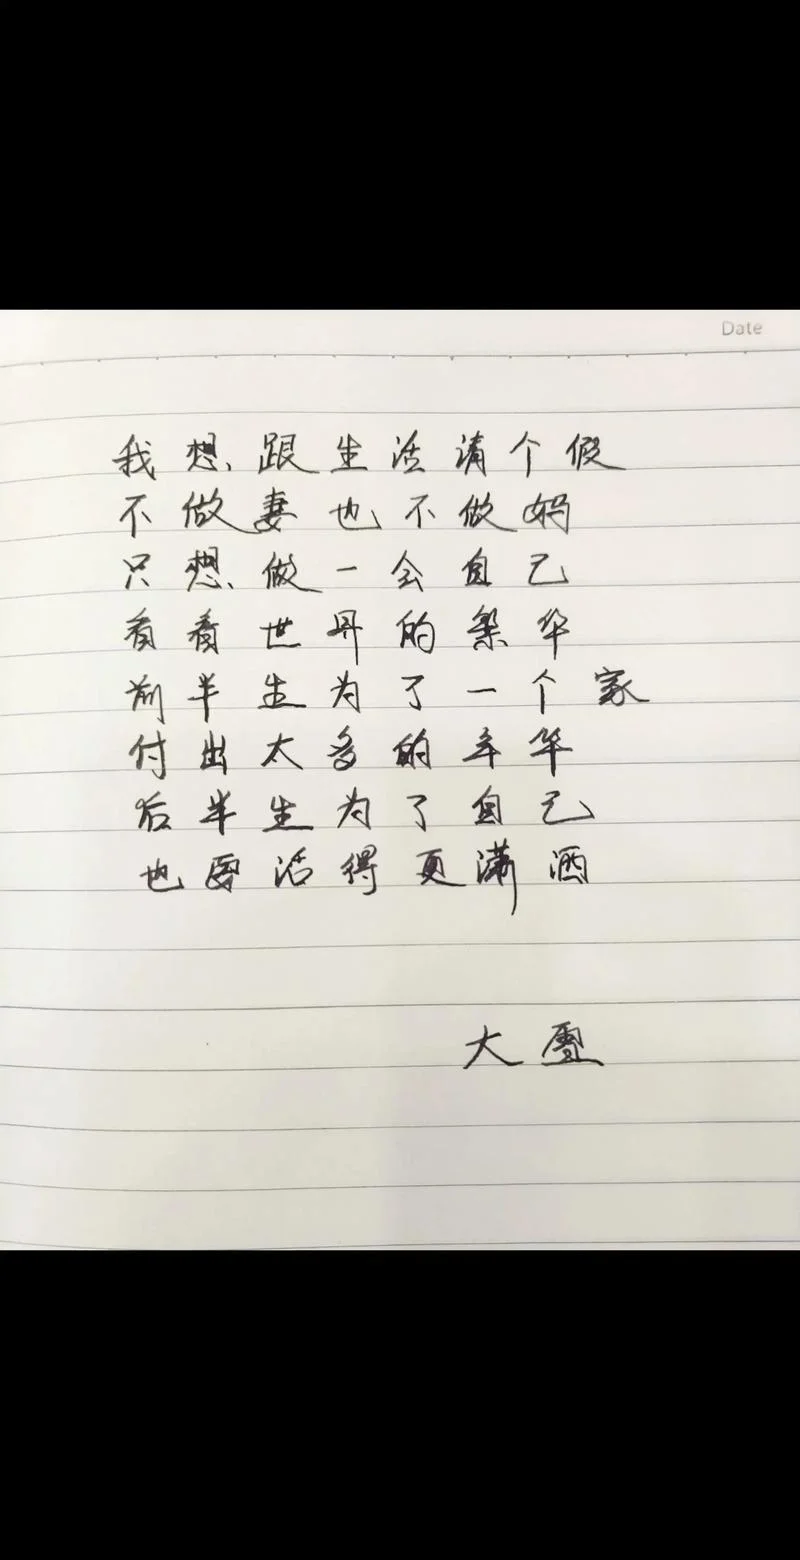 Date
我想跟生活请个假
不做妻也不做妈
只想做一会自己
看看世界的繁华
前半生为了一个家
付出太多的年华
后半生为了自己
也要活得更潇洒
大